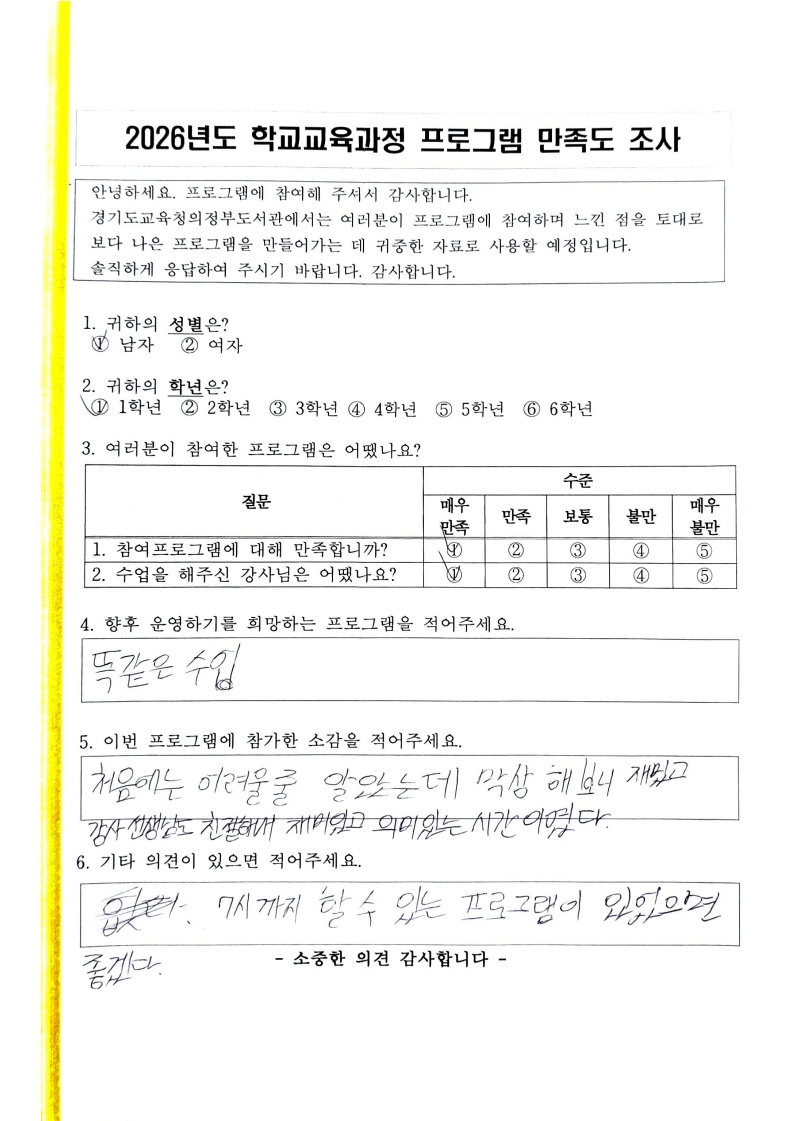 2026년도 학교교육과정 프로그램 만족도 조사
안녕하세요. 프로그램에 참여해 주셔서 감사합니다.
경기도교육청의정부도서관에서는 여러분이 프로그램에 참여하며 느낀 점을 토대로
보다 나은 프로그램을 만들어가는 데 귀중한 자료로 사용할 예정입니다.
솔직하게 응답하여 주시기 바랍니다. 감사합니다.
1. 귀하의 성별은?
① 남자 ② 여자
2. 귀하의 학년은?
① 1학년 ② 2학년 ③ 3학년 ④ 4학년 ⑤ 5학년 ⑥ 6학년
3. 여러분이 참여한 프로그램은 어땠나요?
질문 수준
매우 만족 만족 보통 불만 매우 불만
1. 참여프로그램에 대해 만족합니까? ① ② ③ ④ ⑤
2. 수업을 해주신 강사님은 어땠나요? ① ② ③ ④ ⑤
4. 향후 운영하기를 희망하는 프로그램을 적어주세요.
똑같은 수업
5. 이번 프로그램에 참가한 소감을 적어주세요.
처음에는 어려울줄 알았는데 막상 해보니 재밌고
강사 선생님도 친절해서 재미있고 의미있는 시간이였다.
6. 기타 의견이 있으면 적어주세요.
7시까지 할 수 있는 프로그램이 있었으면
좋겠다.
- 소중한 의견 감사합니다 -